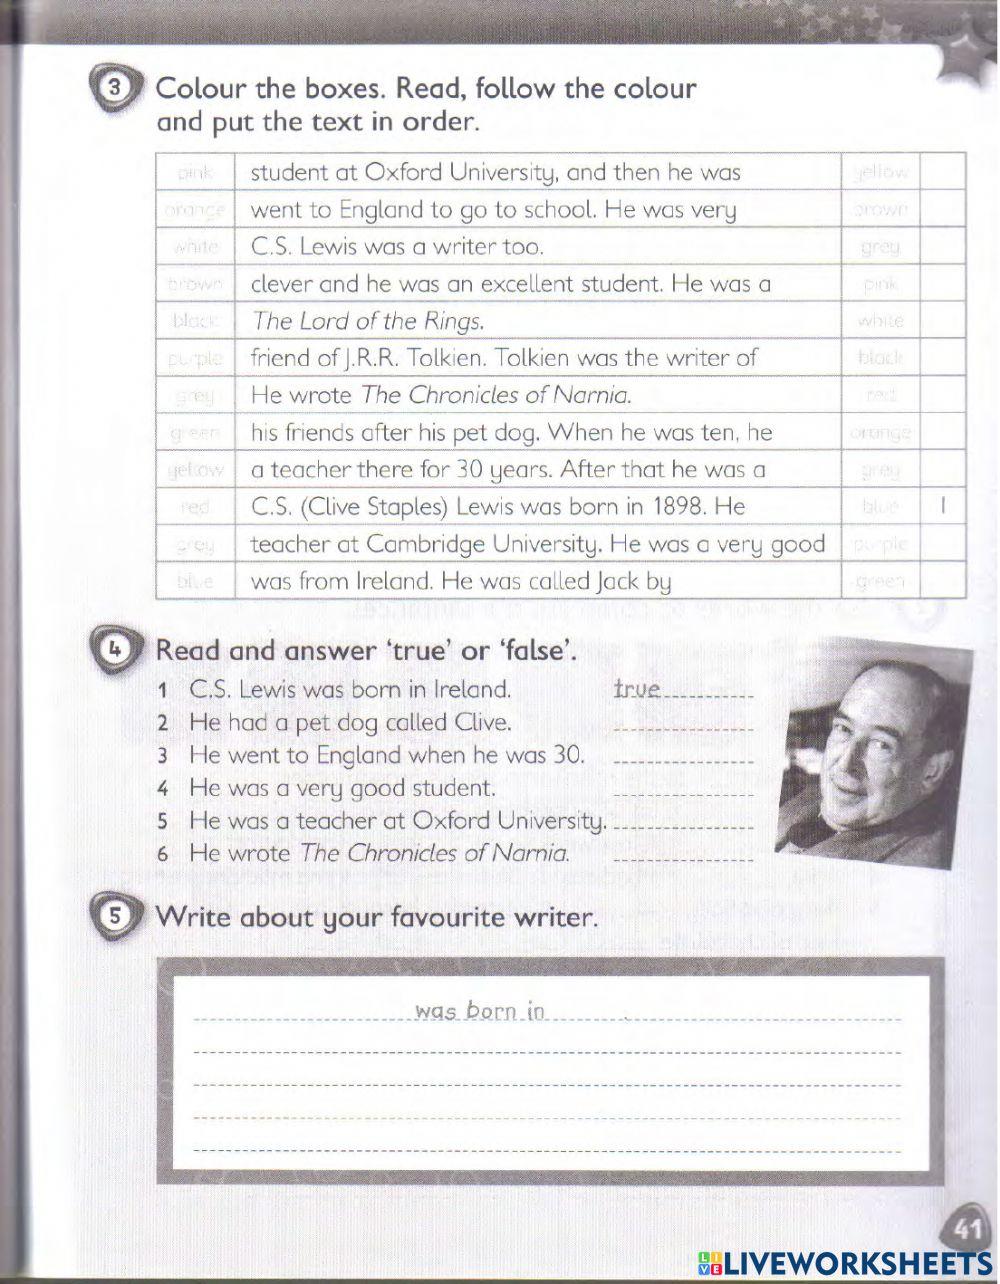 3 Colour the boxes. Read, follow the colour
and put the text in order.
pink student at Oxford University, and then he was yellow
orange went to England to go to school. He was very brown
white C.S. Lewis was a writer too. grey
brown clever and he was an excellent student. He was a pink
black The Lord of the Rings. white
purple friend of J.R.R. Tolkien. Tolkien was the writer of black
grey He wrote The Chronicles of Narnia. red
green his friends after his pet dog. When he was ten, he orange
yellow a teacher there for 30 years. After that he was a grey
red C.S. (Clive Staples) Lewis was born in 1898. He blue 1
grey teacher at Cambridge University. He was a very good purple
blue was from Ireland. He was called Jack by green
4 Read and answer ‘true’ or ‘false’.
1 C.S. Lewis was born in Ireland. true
2 He had a pet dog called Clive.
3 He went to England when he was 30.
4 He was a very good student.
5 He was a teacher at Oxford University.
6 He wrote The Chronicles of Narnia.
5 Write about your favourite writer.
was born in .
41
LIVE LIVEWORKSHEETS